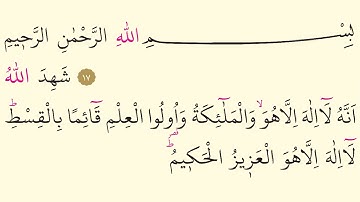 بِسْمِ اللّٰهِ الرَّحْمٰنِ الرَّح۪يمِ
﴿١٧﴾ شَهِدَ اللّٰهُ
اَنَّهُ لَٓا اِلٰهَ اِلَّا هُوَۙ وَالْمَلٰٓئِكَةُ وَاُو۬لُوا الْعِلْمِ قَٓائِمًا بِالْقِسْطِۜ
لَٓا اِلٰهَ اِلَّا هُوَ الْعَز۪يزُ الْحَك۪يمُۜ